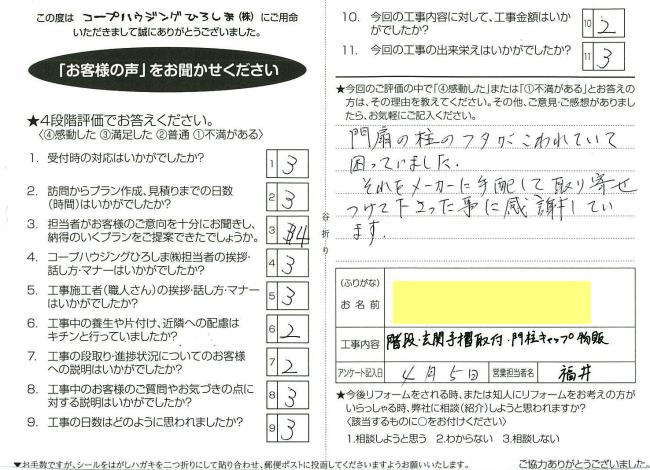 この度は コープハウジングひろしま(株)にご用命
いただきまして誠にありがとうございました。
「お客様の声」をお聞かせください
★4段階評価でお答えください。
〈④感動した ③満足した ②普通 ①不満がある〉
1. 受付時の対応はいかがでしたか?
1 3
2. 訪問からプラン作成、見積りまでの日数
(時間)はいかがでしたか?
2 3
3. 担当者がお客様のご意向を十分にお聞きし、
納得のいくプランをご提案できたでしょうか。
3 4
4. コープハウジングひろしま㈱担当者の挨拶・
話し方・マナーはいかがでしたか?
4 3
5. 工事施工者(職人さん)の挨拶・話し方・マナー
はいかがでしたか?
5 3
6. 工事中の養生や片付け、近隣への配慮は
キチンと行っていましたか?
6 2
7. 工事の段取り・進捗状況についてのお客様
への説明はいかがでしたか?
7 2
8. 工事中のお客様のご質問やお気づきの点に
対する説明はいかがでしたか?
8 3
9. 工事の日数はどのように思われましたか?
9 3
谷折り
10. 今回の工事内容に対して、工事金額はいか
がでしたか?
10 2
11. 今回の工事の出来栄えはいかがでしたか?
11 3
★今回のご評価の中で「④感動した」または「①不満がある」とお答え
の方は、その理由を教えてください。その他、ご意見・ご感想がありまし
たら、お気軽にご記入ください。
門扉の柱のフタがこわれていて
困っていました.
それをメーカーに手配して取り寄せ
つけて下さった事に感謝してい
ます.
(ふりがな)
お名前
工事内容 階段・玄関手摺取付・門柱キャップ物販
アンケート記入日 4月5日 営業担当者名 福井
★今後リフォームをされる時、または知人にリフォームをお考えの方が
いらっしゃる時、弊社に相談(紹介)しようと思われますか?
〈該当するものに○をお付けください〉
1.相談しようと思う 2.わからない 3.相談しない
▼お手数ですが、シールをはがしハガキを二つ折りにして貼り合わせ、郵便ポストに投函してくださいますようお願いいたします。
ご協力ありがとうございました。